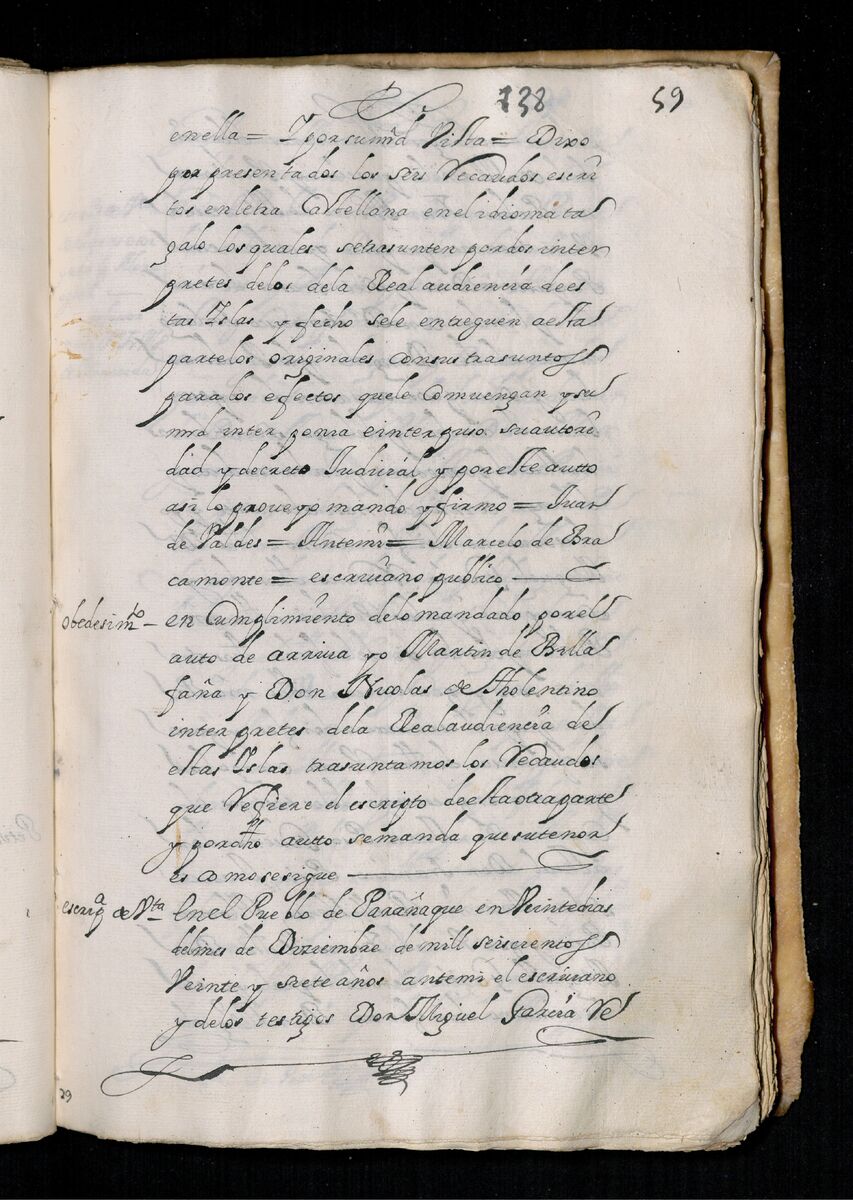 138 59
en ella = Y por su mrd Vista = Dixo
por presentados los seis Recaudos escri
tos en letra Castellana en el idioma ta
galo los quales se trasunten por dos inter
pretes de los de la Real audiencia de es
tas Yslas y fecho se le entreguen a esta
parte los originales con sus trasuntos
para los efectos que le comuengan y su
mrd inter ponia e interpuso su autori
dad y decreto Judicial y por este autto
asi lo proueyo mando y firmo = Juan
de Valdes = Antemi = Marcelo de Bra
camonte = escriuano publico
obedesimto – en Cumplimiento de lo mandado por el
auto de arriua yo Martin de Billa
faña y Don Nicolas de Tholentino
interpretes de la Real audiencia de
estas Yslas trasuntamos los Recaudos
que Refiere el escripto de esta otra parte
y por dho autto se manda que su tenor
es como se sigue
escripa de Vta En el Pueblo de Parañaque en Veinte dias
del mes de Diziembre de mill seiscientos
Veinte y siete años antemi el escriuano
y de los testigos Don Miguel Garcia Re
29